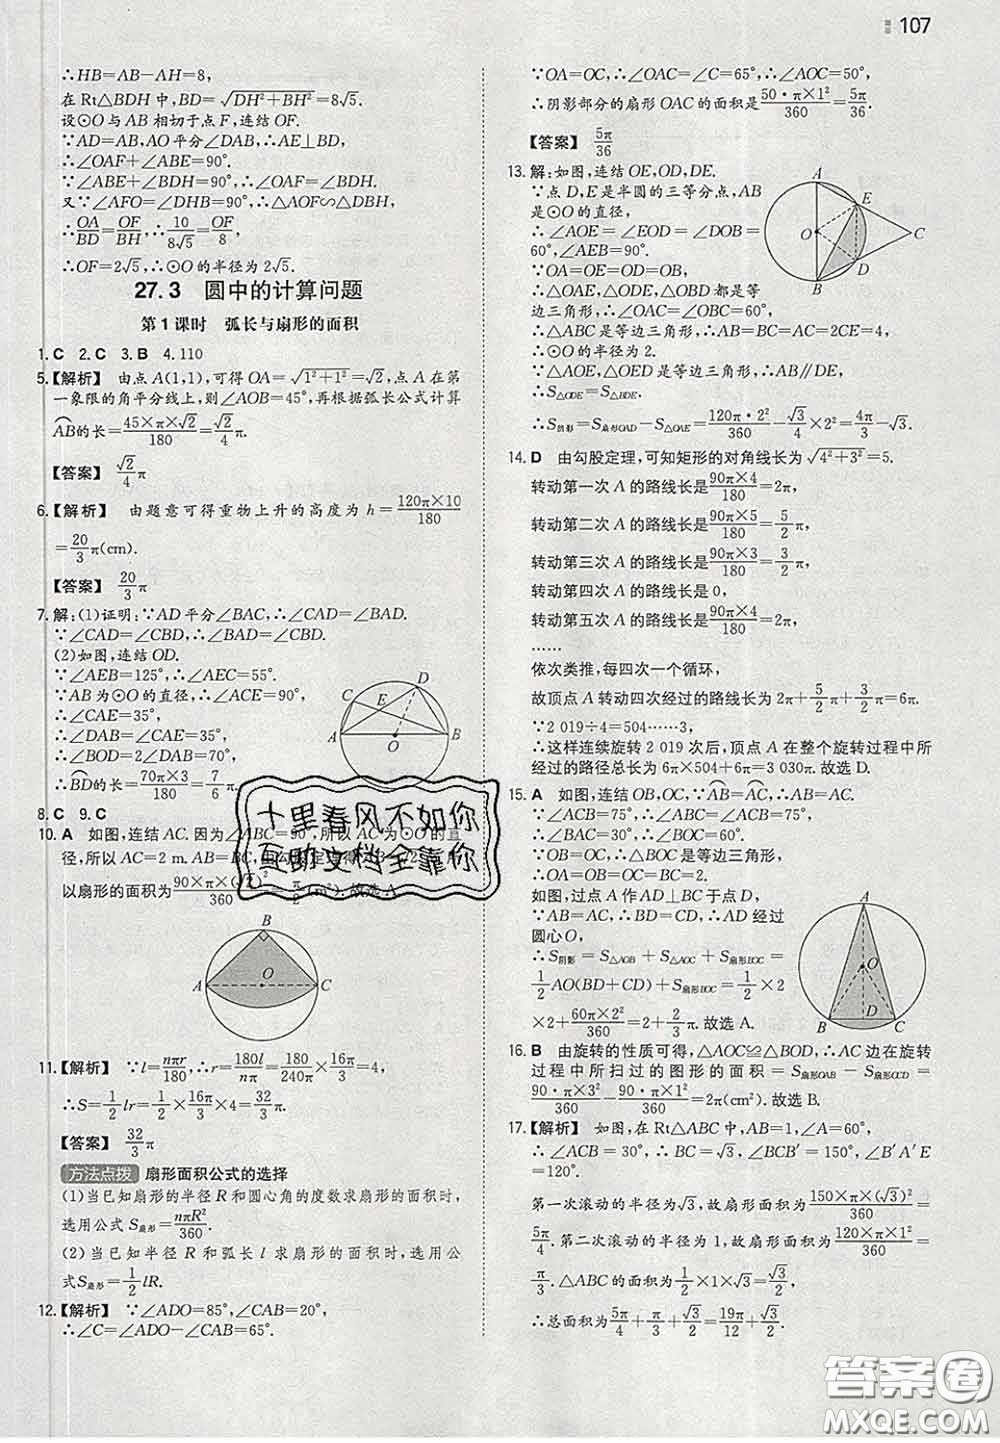 107
∴HB=AB−AH=8,
在 Rt△BDH 中,BD=√(DH²+BH²)=8√5.
设⊙O 与 AB 相切于点 F,连结 OF.
∵AD=AB,AO 平分∠DAB,∴AE⊥BD.
∴∠OAF+∠ABE=90°.
∵∠ABE+∠BDH=90°,∴∠OAF=∠BDH.
又∵∠AFO=∠DHB=90°,∴△AOF∽△DBH,
∴OA/BD=OF/BH,∴10/(8√5)=OF/8,
∴OF=2√5,∴⊙O 的半径为 2√5.
27.3 圆中的计算问题
第 1 课时 弧长与扇形的面积
1. C 2. C 3. B 4. 110
5.【解析】 由点 A(1,1),可得 OA=√(1²+1²)=√2,点 A 在第
一象限的角平分线上,则∠AOB=45°,再根据弧长公式计算
⌒AB的长=(45×π×√2)/180=(√2/4)π.
【答案】 (√2/4)π
6.【解析】 由题意可得重物上升的高度为 h=(120π×10)/180
=(20/3)π(cm).
【答案】 (20/3)π
7. 解:(1)证明:∵AD 平分∠BAC,∴∠CAD=∠BAD.
∵∠CAD=∠CBD,∴∠BAD=∠CBD.
(2)如图,连结 OD.
∵∠AEB=125°,∴∠AEC=55°.
∵AB 为⊙O 的直径,∴∠ACE=90°,
∴∠CAE=35°,
∴∠DAB=∠CAE=35°.
∴∠BOD=2∠DAB=70°,
∴⌒BD的长=(70π×3)/180=(7/6)π.
C D A O B E
8. C 9. C
10. A 如图,连结 AC. 因为∠ABC=90°,所以 AC 为⊙O 的直
径,所以 AC=2 m. AB=BC,
以扇形的面积为(90×π×(√2)²)/360=π/2(m²).故选 A.
十里春风不如你
互助文档全靠你
B A O C
11.【解析】 ∵l=nπr/180,∴r=180l/nπ=180/240π×16π/3=4,
∴S=(1/2)lr=1/2×16π/3×4=(32/3)π.
【答案】 (32/3)π
方法点拨 扇形面积公式的选择
(1)当已知扇形的半径 R 和圆心角的度数求扇形的面积时,
选用公式 S扇形=nπR²/360.
(2)当已知半径 R 和弧长 l 求扇形的面积时,选用公
式S扇形=(1/2)lR.
12.【解析】 ∵∠ADO=85°,∠CAB=20°,
∴∠C=∠ADO−∠CAB=65°.
∵OA=OC,∴∠OAC=∠C=65°,∴∠AOC=50°,
∴阴影部分的扇形 OAC 的面积是(50·π×1²)/360=5π/36.
【答案】 5π/36
13. 解:如图,连结 OE,OD,DE.
∵点 D,E 是半圆的三等分点,AB
是⊙O 的直径,
∴∠AOE=∠EOD=∠DOB=
60°,∠AEB=90°.
∴△AOE,△EOD,△BOD 都是等
边三角形,∴∠OAC=∠OBC=60°,
∴△ABC 是等边三角形,∴AB=BC=AC=2CE=4,
∴⊙O 的半径为 2.
∵△AOE,△OED 是等边三角形,∴AB∥DE,
∴S△ODE=S△BDE.
∴S阴影=S扇形OAD−S△OAE=(120π·2²)/360−√3/4×2²=4π/3−√3.
A E O C D B
14. D 由勾股定理,可知矩形的对角线长为√(4²+3²)=5.
转动第一次 A 的路线长是(90π×4)/180=2π,
转动第二次 A 的路线长是(90π×5)/180=(5/2)π,
转动第三次 A 的路线长是(90π×3)/180=(3/2)π,
转动第四次 A 的路线长是 0,
转动第五次 A 的路线长是(90π×4)/180=2π,
……
依次类推,每四次一个循环,
故顶点 A 转动四次经过的路线长为 2π+(5/2)π+(3/2)π=6π.
∵2 019÷4=504……3,
∴这样连续旋转 2 019 次后,顶点 A 在整个旋转过程中所
经过的路径总长为 6π×504+6π=3 030π.故选 D.
15. A 如图,连结 OB,OC,∵⌒AB=⌒AC,∴AB=AC.
∵∠ACB=75°,∴∠ABC=75°,
∴∠BAC=30°,
∴∠BOC=60°,∴△BOC 是等边三角形,
∴OA=OB=OC=BC=2.
如图,过点 A 作 AD⊥BC 于点 D,
∵AB=AC,∴BD=CD,∴AD 经过
圆心 O,
∴S阴影=S△AOB+S△AOC+S扇形BOC=
(1/2)AO(BD+CD)+S扇形BOC=1/2×2
×2+(60π×2²)/360=2+(2/3)π.故选 A.
A O D B C
16. B 由旋转的性质可得,△AOC≌△BOD,∴AC 边在旋转
过程中所扫过的图形的面积=S扇形OAB−S扇形OCD=
(90·π×3²)/360−(90·π×1²)/360=2π(cm²).故选 B.
17.【解析】 如图,在 Rt△ABC 中,AB=1,∠A=60°,
∴∠C=30°,∴BC=√3,∠BCB′=150°,∠B′A′E
=120°.
第一次滚动的半径为√3,故扇形面积为(150×π×(√3)²)/360=
5π/4.第二次滚动的半径为 1,故扇形面积为(120×π×1²)/360=
π/3.△ABC 的面积为1/2×1×√3=√3/2,
∴总面积为5π/4+π/3+√3/2=19π/12+√3/2.
答案圈
MXQE.COM